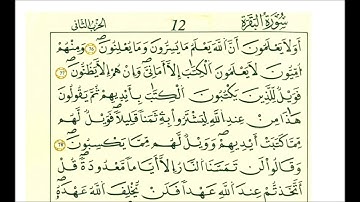 سُورَةُ الْبَقَرَةِ 12 الحزب الثاني
أَوَلَا يَعْلَمُونَ أَنَّ اَللَّهَ يَعْلَمُ مَا يُسِرُّونَ وَمَا يُعْلِنُونَ وَمِنْهُمُ
أُمِّيُّونَ لَا يَعْلَمُونَ اَلْكِتَٰبَ إِلَّا أَمَانِيَّ وَإِنْ هُمُ إِلَّا يَظُنُّونَ
فَوَيْلٌ لِّلَّذِينَ يَكْتُبُونَ اَلْكِتَٰبَ بِأَيْدِيهِمْ ثُمَّ يَقُولُونَ
هَٰذَا مِنْ عِندِ اِللَّهِ لِيَشْتَرُواْ بِهِ ثَمَناً قَلِيلاً فَوَيْلٌ لَّهُم
مِّمَّا كَتَبَتْ أَيْدِيهِمْ وَوَيْلٌ لَّهُم مِّمَّا يَكْسِبُونَ
وَقَالُواْ لَن تَمَسَّنَا اَلنَّارُ إِلَّا أَيَّاماً مَّعْدُودَةً قُلْ
أَتَّخَذتُّمْ عِندَ اَللَّهِ عَهْداً فَلَنْ يُّخْلِفَ اَللَّهُ عَهْدَهُ